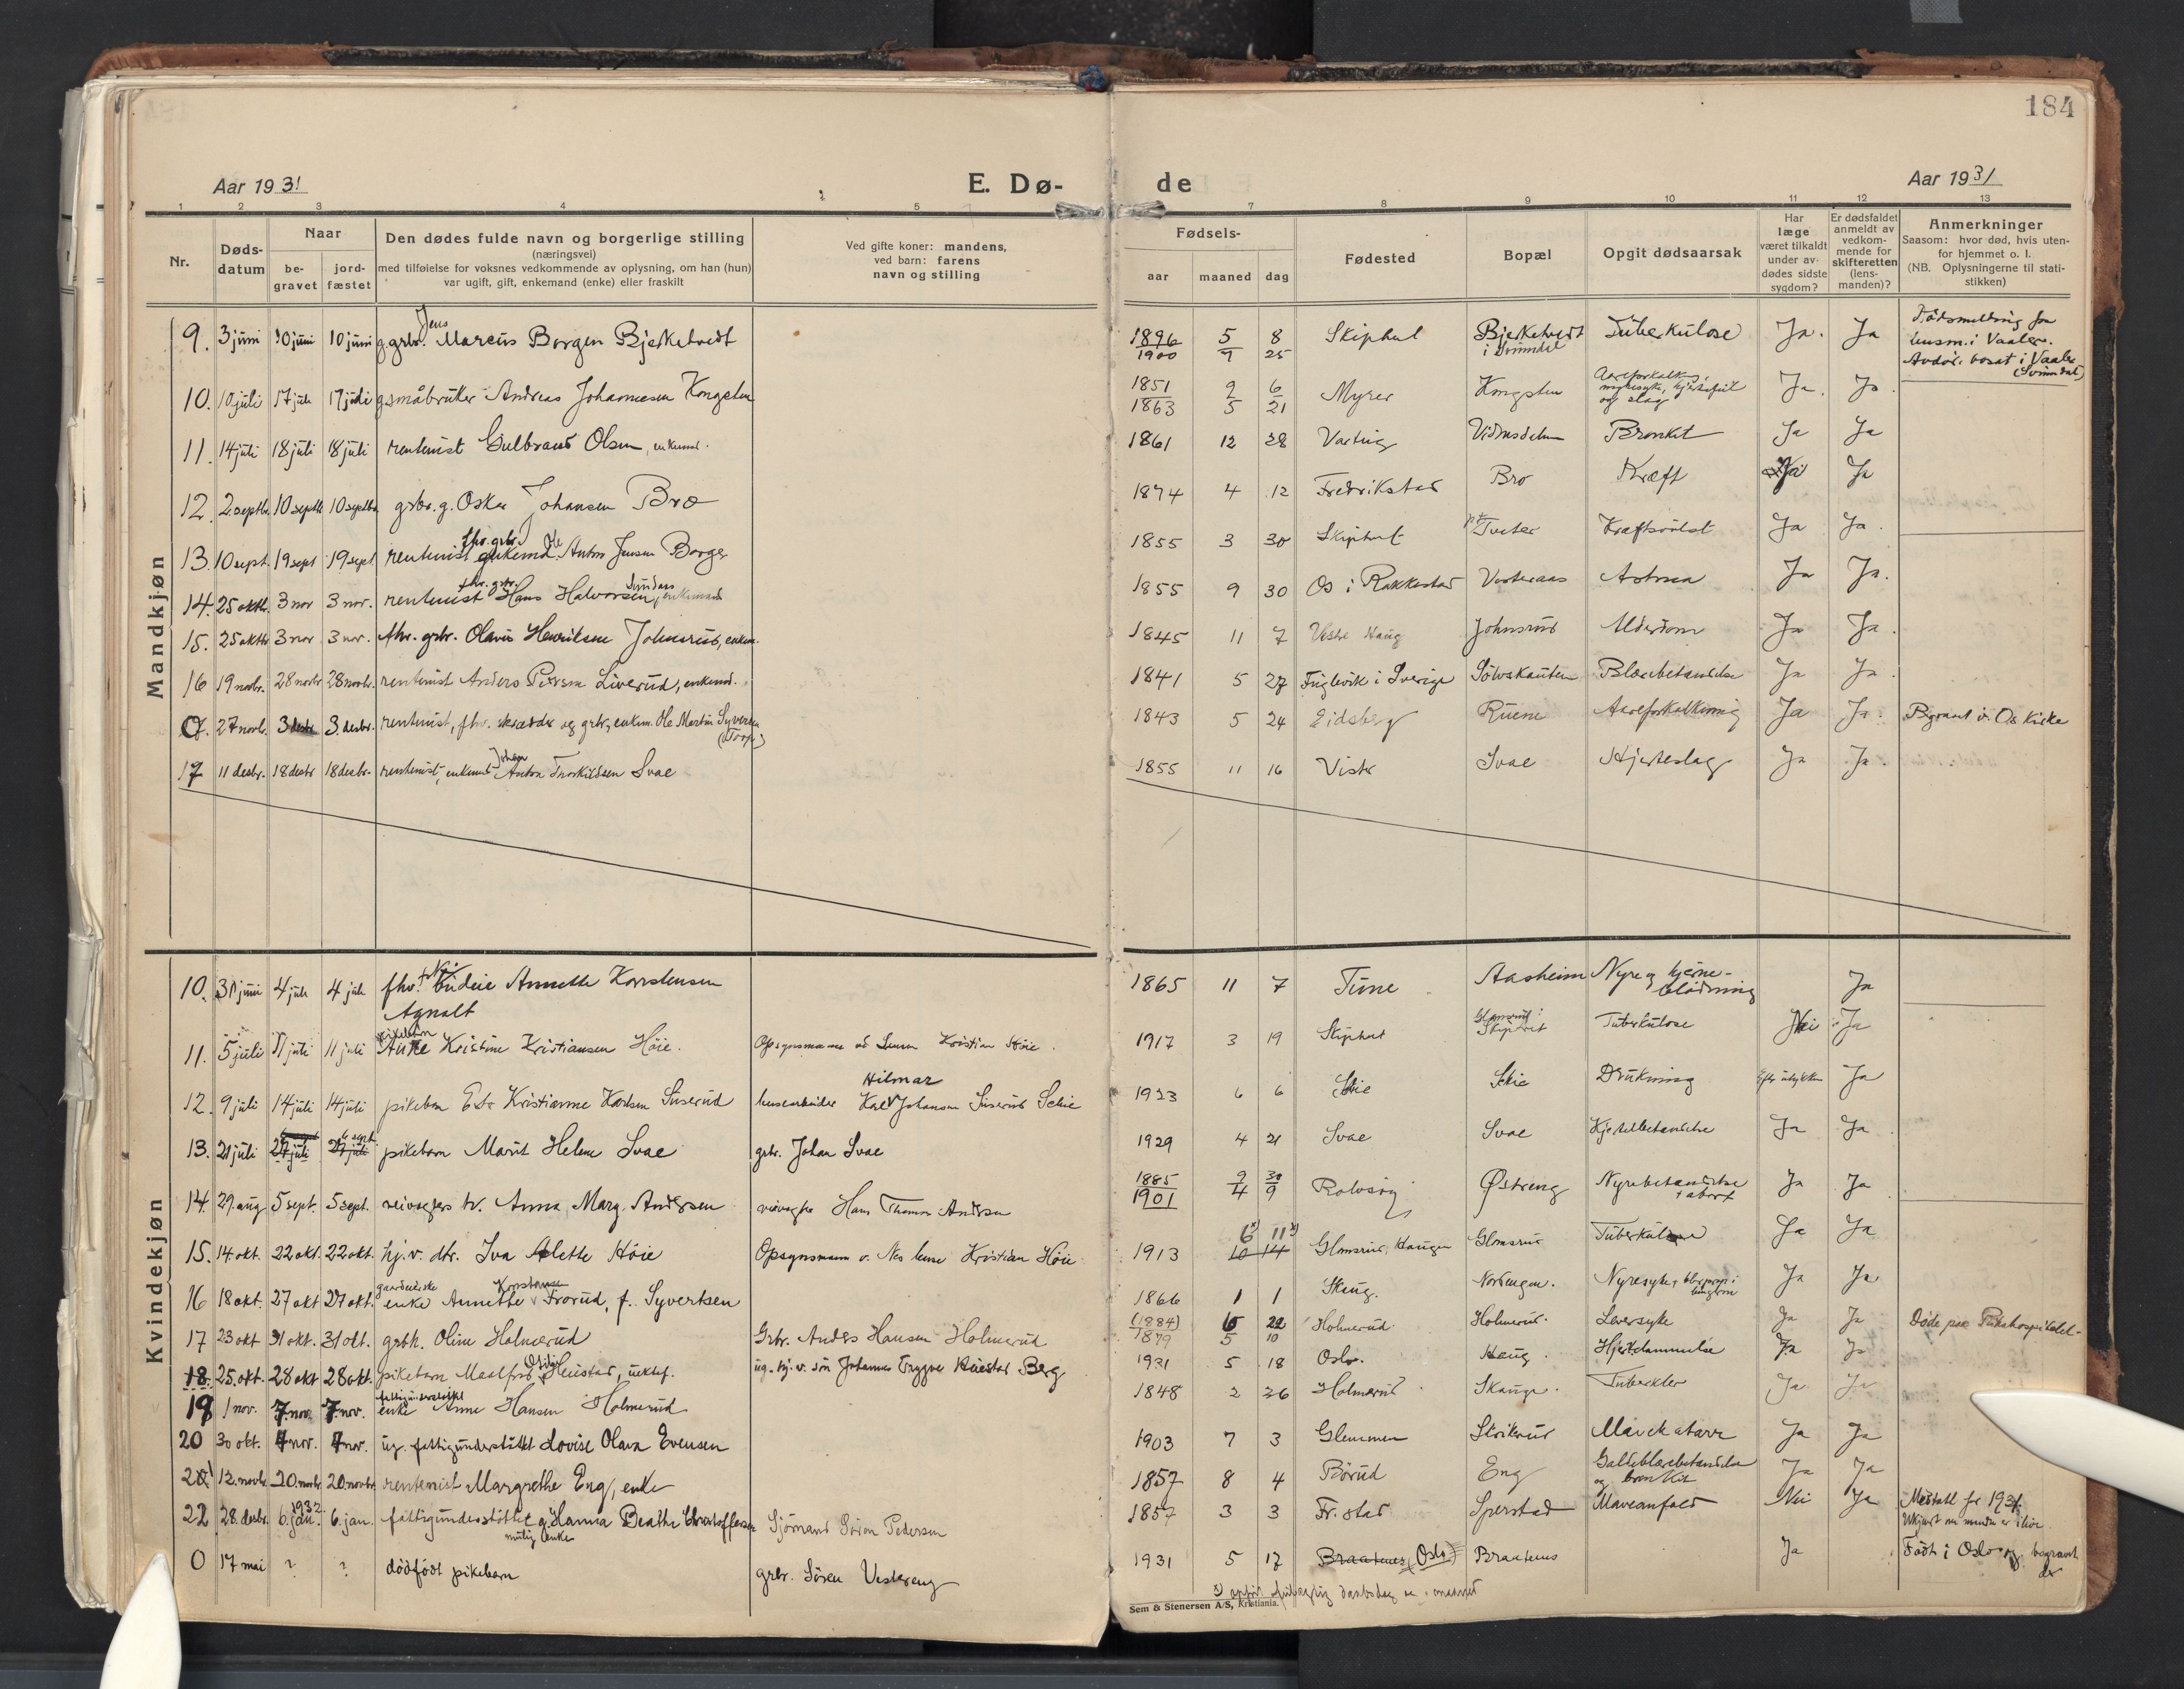 184
Aar 1931
E. Dø-
de
Aar 1931
1 2 3 4 5 7 8 9 10 11 12 13
Nr.
Døds-
datum
Naar
be-
gravet
jord-
fæstet
Den dødes fulde navn og borgerlige stilling
(næringsvei)
med tilføielse for voksnes vedkommende av oplysning, om han (hun)
var ugift, gift, enkemand (enke) eller fraskilt
Ved gifte koner: mandens,
ved barn: farens
navn og stilling
Fødsels-
aar maaned dag
Fødested
Bopæl
Opgit dødsaarsak
Har
læge
været tilkaldt
under av-
dødes sidste
sygdom?
Er dødsfaldet
anmeldt av
vedkom-
mende for
skifteretten
(lens-
manden)?
Anmerkninger
Saasom: hvor død, hvis uten-
for hjemmet o. l.
(NB. Oplysningerne til stati-
stikken)
Mandkjøn
9. 3 juni 10 juni 10 juni g. grbr. Jens Marcus Borgen Bjerketvedt 1896 5 8 Skiphul Bjerketvedt Tuberkulose Ja. Ja
1900 9 25 i Svinndal
Dødsmelding fra
lensm. i Vaaler.
Avdøde bosat i Vaaler
(Svinndal)
10. 10 juli 17 juli 17 juli g. småbruker Andreas Johannesen Kongsten 1851 2 6 Myrer Kongsten Aareforkalkn., Ja. Ja.
1863 5 21 og slag
11. 14 juli 18 juli 18 juli rentenist Gulbrand Olsen, enkemd. 1861 12 28 Bronkit Ja Ja
12. 2 septbr. 10 septbr 10 septbr grbr. g. Oskar Johansen Bro 1874 4 12 Fredrikstad Bro Kræft Ja Ja
13. 10 sept. 19 sept 19 sept. rentenist fhv. grbr. enkemd. Ole Anton Jensen Borge 1855 3 30 Skiphul Tveter Kræftsvulst Ja Ja.
14. 25 oktbr. 3 nov 3 nov. rentenist fhv. grbr. Hans Halvorsen, enkemand 1855 9 30 Os i Rakkestad Vesteraas Astma Ja Ja.
15. 25 oktbr 3 nov 3 nov. fhv. grbr. Olavus Henriksen Johnsrud, enkem. 1845 11 7 Vestre Haug Johnsrud Alderdom Ja Ja.
16 19 novbr. 28 novbr 28 novbr. rentenist Anders Peersen Liverud, enkemd. 1841 5 27 Fuglevik i Sverige Sölvskauten Blærebetændelse Ja Ja.
0. 27 novb. 3 desbr 3. desbr. rentenist, fhv. skrædder og grbr, enkem. Ole Martin Syversen 1843 5 24 Eidsberg Ruene Aareforkalkning Ja Ja. Begravet v. Os kirke
(Torp)
17 11 desbr. 18 desbr 18 desbr. rentenist, enkemd Johan Anton Torkildsen Svae 1855 11 16 Vister Svae Hjerteslag Ja Ja.
Kvindekjøn
10. 31 juni 4 juli 4 juli fhv. budeie Annette Karstensen 1865 11 7 Tune Aasheim Nyre og hjerne- Ja
Agnalt blödning
11. 5 juli 11 juli 11 juli pikebarn Anne Kristine Kristiansen Höie. Opsynsmann Kristian Höie. 1917 3 19 Skiphul Skiphul Tuberkulose Nei Ja
12. 9 juli 14 juli 14 juli pikebarn Kristianne Karlsen Suserud Karl Hilmar Johansen Suserud Schie 1923 6 6 Skie Skie Drukning Efter ulykken Ja
13. 21 juli 27 juli 27 juli pikebarn Marit Helene Svae grbr. Johan Svae 1929 4 21 Svae Svae Ja Ja
14. 29. aug 5 sept. 5 sept. veivogters h. Anna Marg. Andersen veivogter Hans Thomas Andersen 1885 9 30 Rolvsöy Østreng Nyrebetændelse Ja Ja
1901 4 9 + abort
15. 14 okt. 22 okt. 22 okt. hj. v. dtr. Iva Alette Höie Opsynsmann v. Kristian Höie 1913 6 11 Glomsrud, Haugen Glomsrud Tuberkulose Ja Ja
10 14
16 18 okt. 27 okt 27 okt. enke Annette Konstanse Frorud, f. Syvertsen 1866 1 1 Skaug. Norhaugen. Nyresyke, Ja Ja
17 23 okt 31 okt. 31 okt. grbk. Oline Holmerud Grbr. Anders Hansen Holmerud (1884) 6 22 Holmerud. Holmerud. Leversyke Ja Ja
1879 5 10
Døde paa Rikshospitalet.
18. 25. okt. 28 okt 28 okt. pikebarn Maalfrid ug. hj. v. sön Johannes Trygve Berg 1931 5 18 Oslo. Haug. Hjertelammelse Ja Ja
19 1 nov. 7. nov. 7. nov. fattigunderstöttet enke Anne Hansen Holmerud 1848 2 26 Holmerud Skauge. Tuberkler Ja Ja
20 30 okt. 7 nov. 7 nov. ug. fattigunderstöttet Lovise Olava Evensen 1903 7 3 Glemmen Mavekatarr Ja Ja
21 12. novbr. 20. novbr 20. novbr. rentenist Margrethe Eng, enke 1857 8 4 Börud Eng Galleblærebetændelse Ja Ja
og bronkit
22 28. desbr. 6. jan. 1932 6. jan. fattigunderstöttet g. Hanna Beathe Christoffersen Sjömand Sören Pedersen 1857 3 3 Fr. stad Sperstad Maveanfald Nei Ja
mulig enke
0 17 mai ? ? dödfödt pikebarn grbr. Sören Vestereng 1931 5 17 Braatenes, Oslo Braatenes Ja Födt i Oslo og begravet
der
Sem & Stenersen A/S, Kristiania.